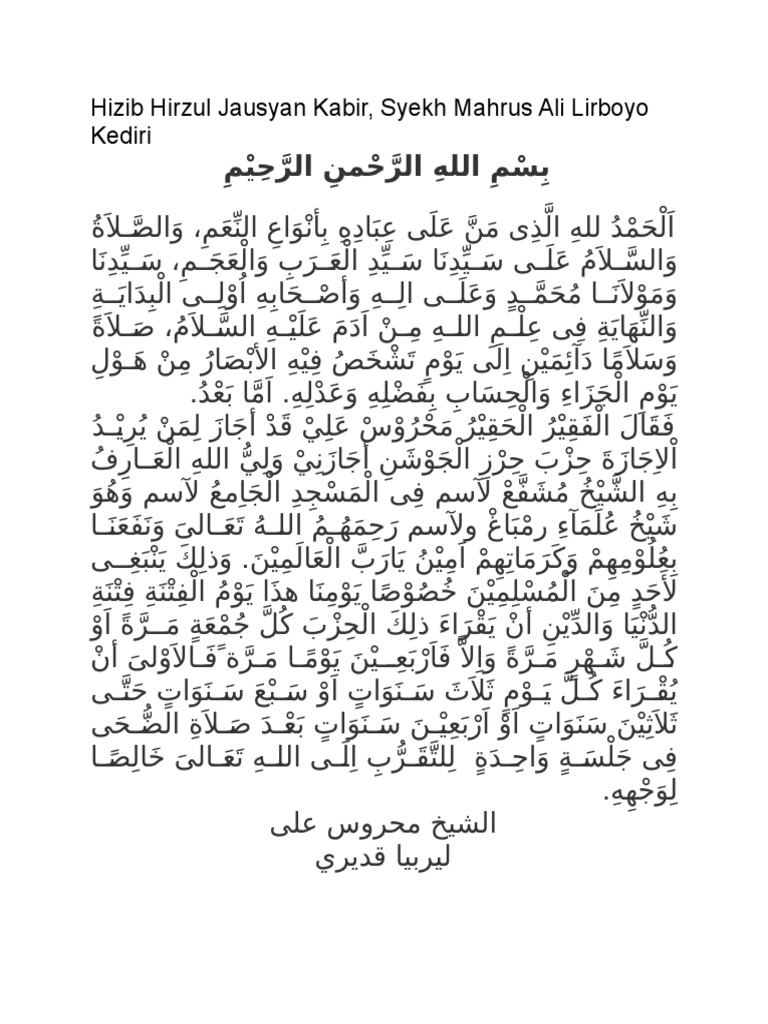 Hizib Hirzul Jausyan Kabir, Syekh Mahrus Ali Lirboyo
Kediri
بِسْمِ اللهِ الرَّحْمنِ الرَّحِيْمِ
اَلْحَمْدُ للهِ الَّذِى مَنَّ عَلَى عِبَادِهِ بِأنْوَاعِ النِّعَمِ، وَالصَّلاَةُ
وَالسَّلاَمُ عَلَى سَيِّدِنَا سَيِّدِ الْعَرَبِ وَالْعَجَمِ، سَيِّدِنَا
وَمَوْلاَنَا مُحَمَّدٍ وَعَلَى الِهِ وَأصْحَابِهِ اُوْلِى الْبِدَايَةِ
وَالنِّهَايَةِ فِى عِلْمِ اللهِ مِنْ اَدَمَ عَلَيْهِ السَّلاَمُ، صَلاَةً
وَسَلاَمًا دَآئِمَيْنِ اِلَى يَوْمٍ تَشْخَصُ فِيْهِ الأبْصَارُ مِنْ هَوْلِ
يَوْمِ الْجَزَاءِ وَالْحِسَابِ بِفَضْلِهِ وَعَدْلِهِ. اَمَّا بَعْدُ.
فَقَالَ الْفَقِيْرُ الْحَقِيْرُ مَحْرُوْسْ عَلِيْ قَدْ أجَازَ لِمَنْ يُرِيْدُ
اْلاِجَازَةَ حِزْبَ حِرْزِ الْجَوْشَنِ أجَازَنِيْ وَلِيُّ اللهِ الْعَارِفُ
بِهِ الشَّيْخُ مُشَفَّعْ لآسم فِى الْمَسْجِدِ الْجَامِعُ لآسم وَهُوَ
شَيْخُ عُلَمَآءِ رمْبَاغْ ولآسم رَحِمَهُمُ اللهُ تَعَالىَ وَنَفَعَنَا
بِعُلُوْمِهِمْ وَكَرَمَاتِهِمْ اَمِيْنُ يَارَبَّ الْعَالَمِيْنَ. وَذلِكَ يَنْبَغِى
لأَحَدٍ مِنَ الْمُسْلِمِيْنَ خُصُوْصًا يَوْمِنَا هذَا يَوْمُ الْفِتْنَةِ فِتْنَةِ
الدُّنْيَا وَالدِّيْنِ أنْ يَقْرَاءَ ذلِكَ الْحِزْبَ كُلَّ جُمْعَةٍ مَرَّةً اَوْ
كُلَّ شَهْرٍ مَرَّةً وَاِلاَّ فَاَرْبَعِيْنَ يَوْمًا مَرَّة ًفَالاَوْلىَ أنْ
يُقْرَاءَ كُلَّ يَوْمٍ ثَلاَثَ سَنَوَاتٍ اَوْ سَبْعَ سَنَوَاتٍ حَتَّى
ثَلاَثِيْنَ سَنَوَاتٍ اَوْ اَرْبَعِيْنَ سَنَوَاتٍ بَعْدَ صَلاَةِ الضُّحَى
فِى جَلْسَةٍ وَاحِدَةٍ لِلتَّقَرُّبِ اِلَى اللهِ تَعَالىَ خَالِصًا
لِوَجْهِهِ.
الشيخ محروس على
ليربيا قديري